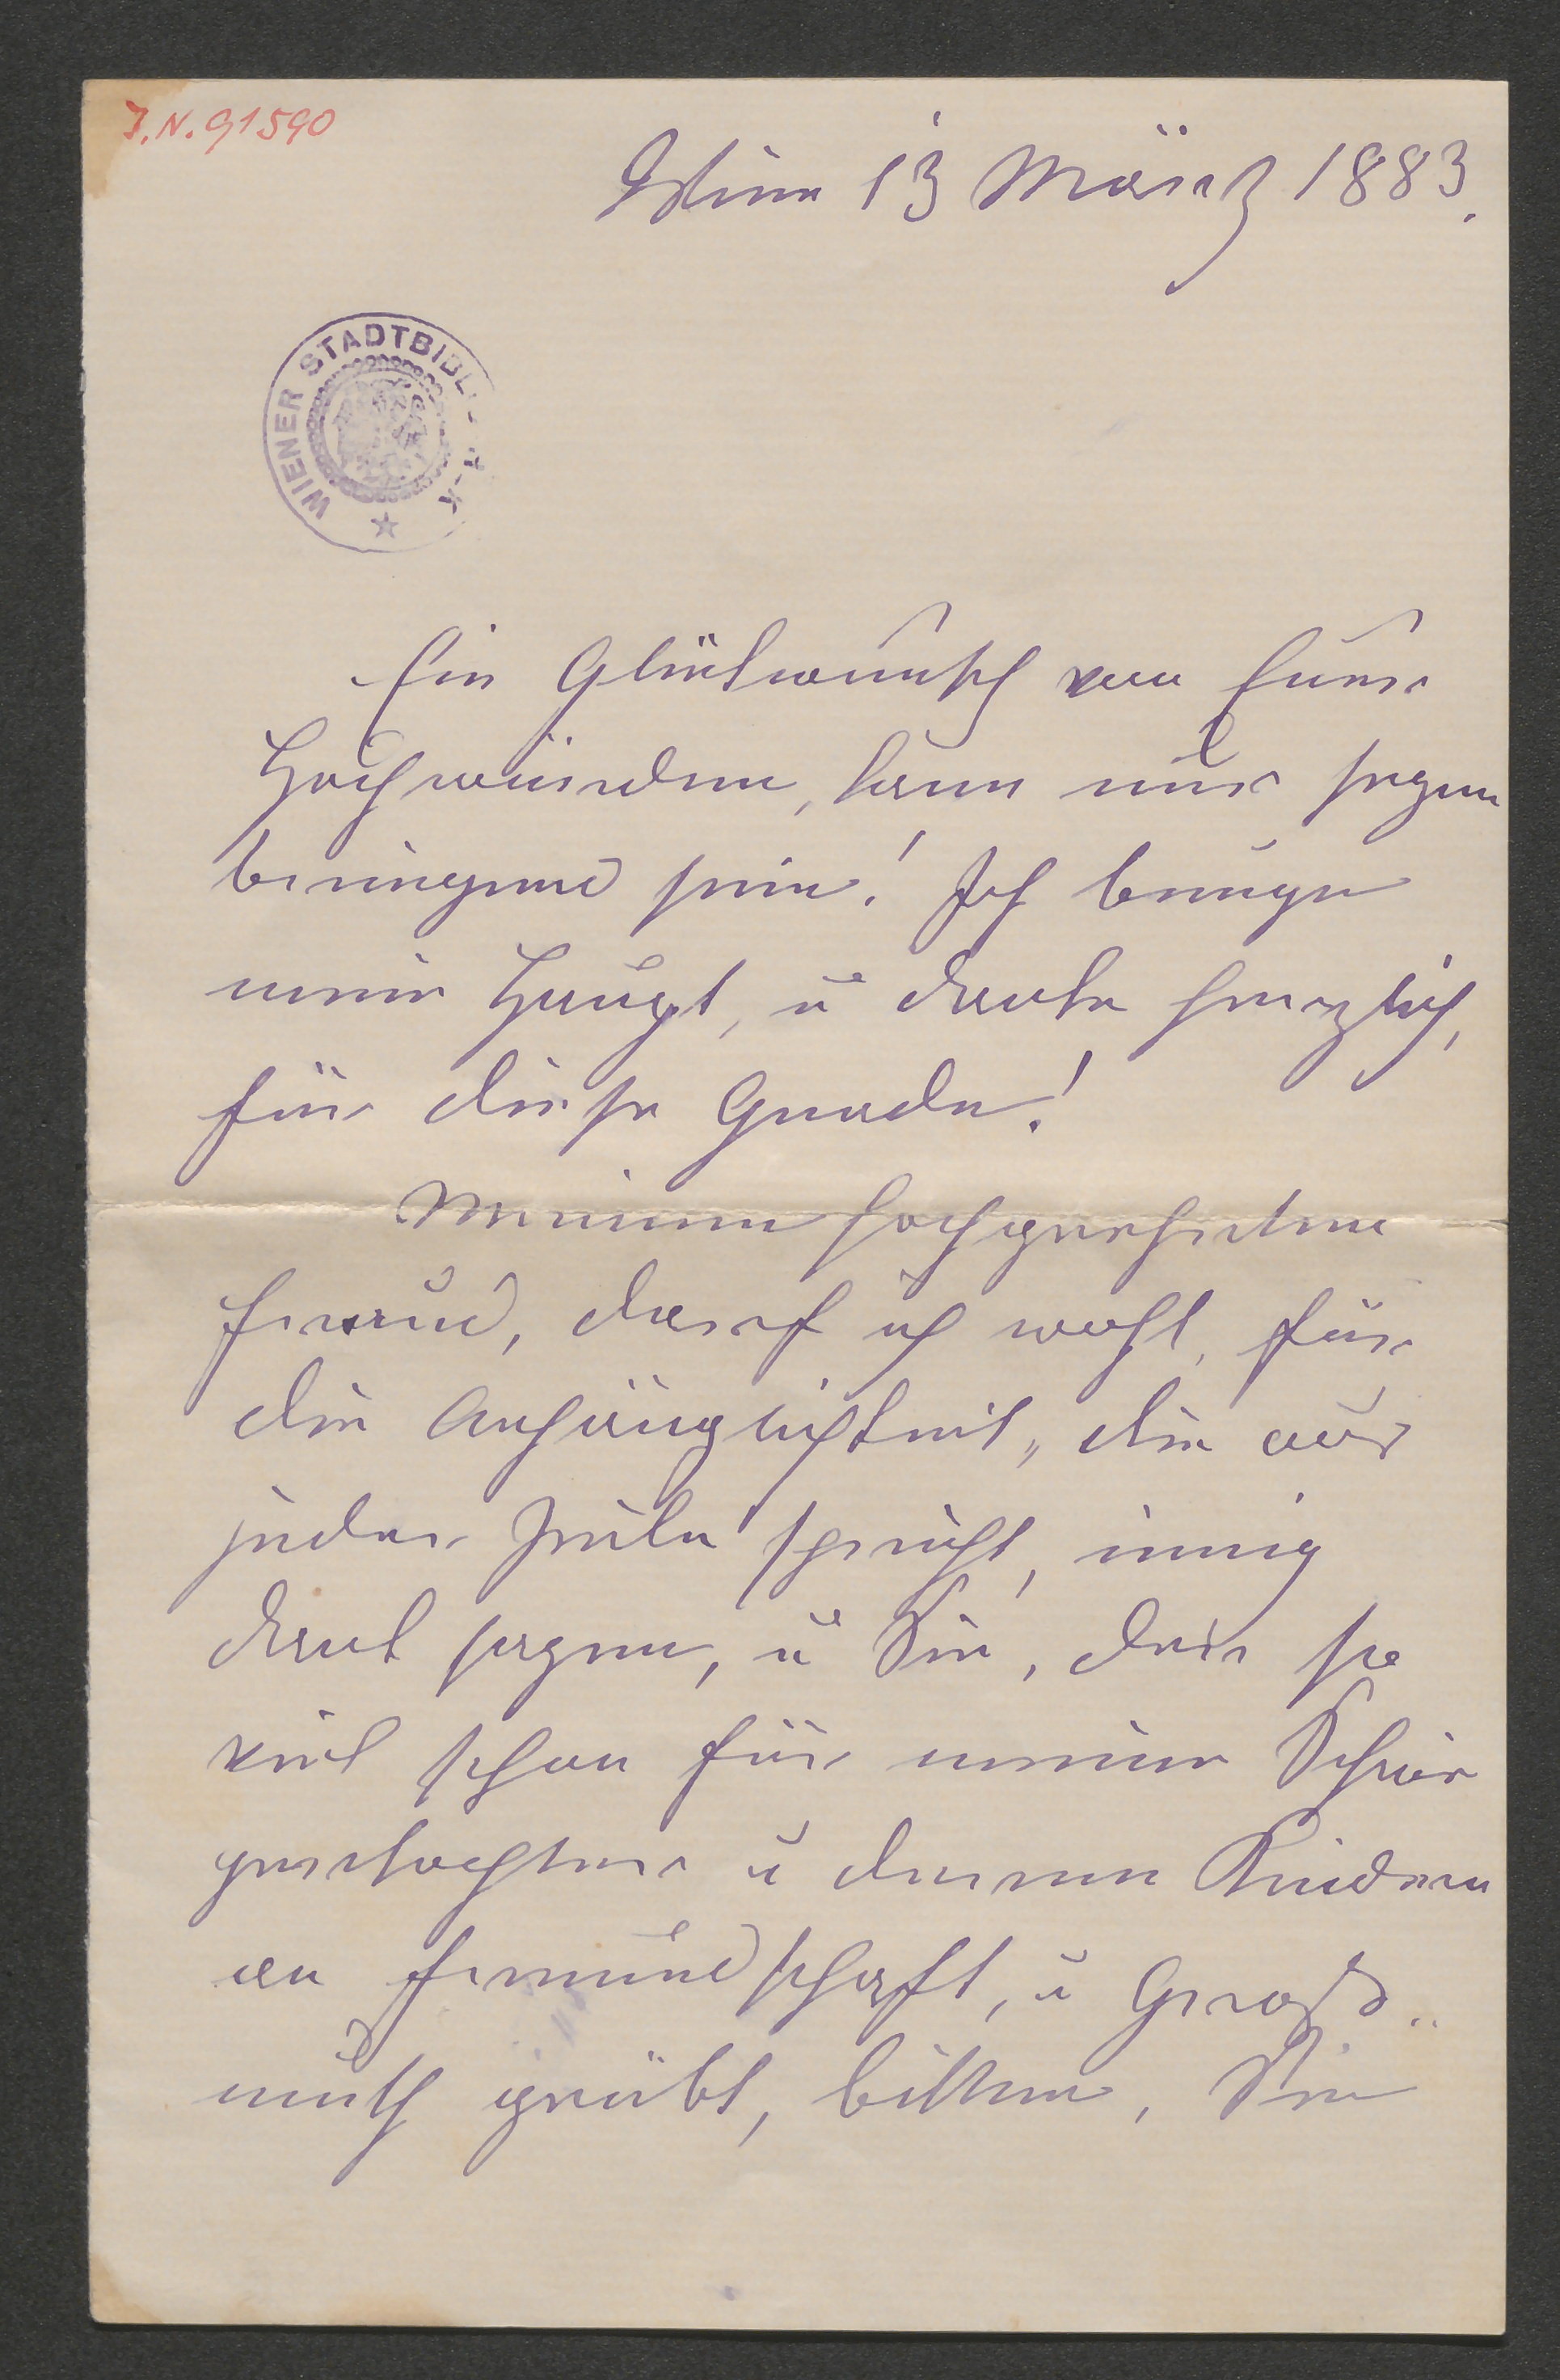 J.N. 91590
Wien 13 März 1883.
WIENER STADTBIBLIOTHEK
Ein Glückwunsch von Euer
Hochwürden, kann nur segen
bringend sein! Ich beuge
mein Haupt, u danke herzlich,
für diese Gnade!
Meinem hochgeehrten
Freund, darf ich wohl, für
die Anhänglichkeit, die aus
jeder Zeile spricht, innig
dank sagen, u Sie, der so
viel schon für meine Schwie
gertochter u deren Kindern
an Freundschaft, u Groß„
muth geübt, bitten, Sie